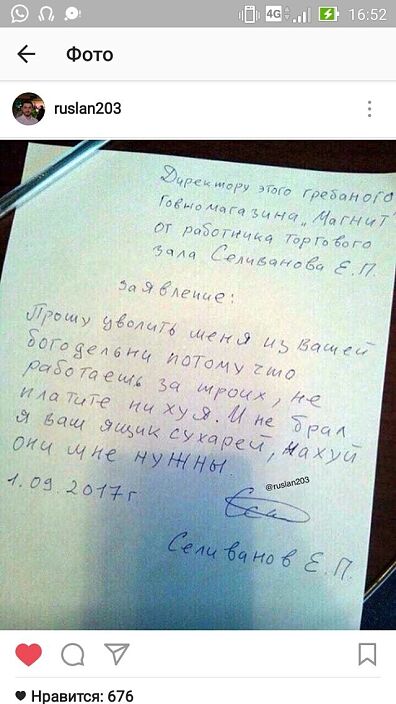 4G
16:52
Фото
ruslan203
Директору этого гребаного
говномагазина „Магнит"
от работника торгового
зала Селиванова Е.П.
заявление:
Прошу уволить меня из вашей
богодельни потому что
работаешь за троих, не
платите ни хуя. И не брал
я ваш ящик сухарей, нахуй
они мне нужны
@ruslan203
1.09.2017г
Селиванов Е.П.
Нравится: 676